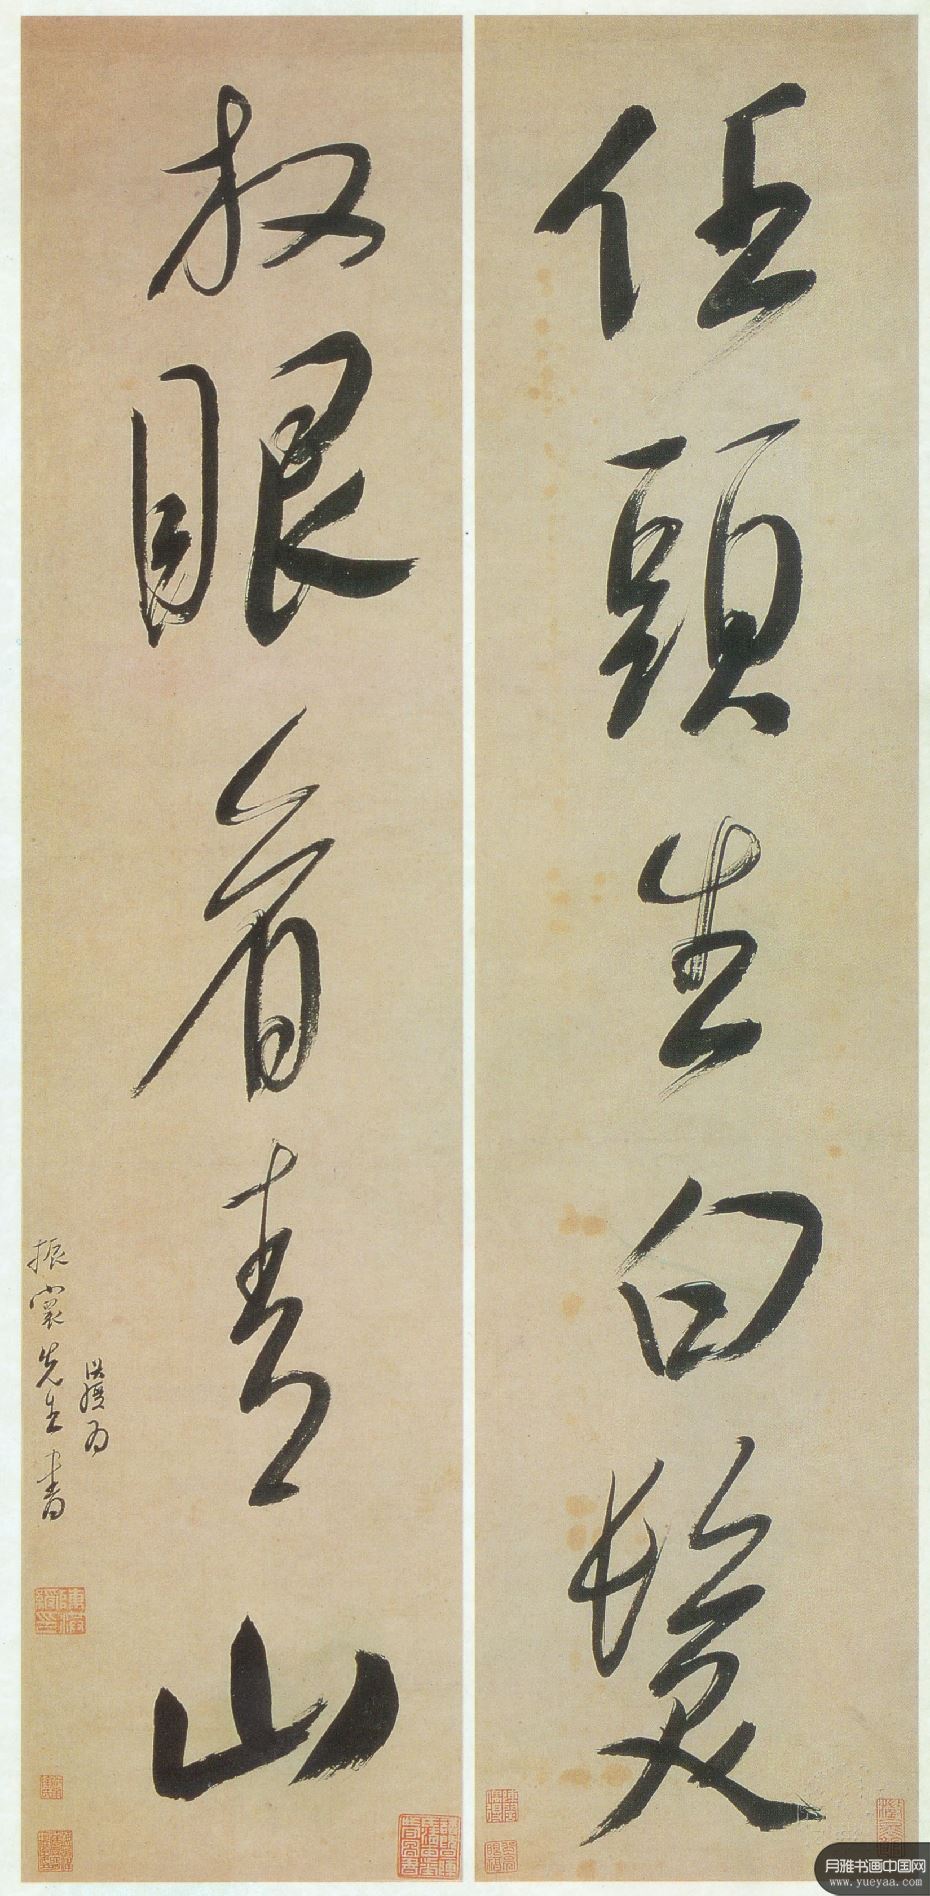 任頭生白髮
放眼看青山
洪綬為
振裳先生書
陳洪綬印
月雅书画中国网
www.yueyaa.com